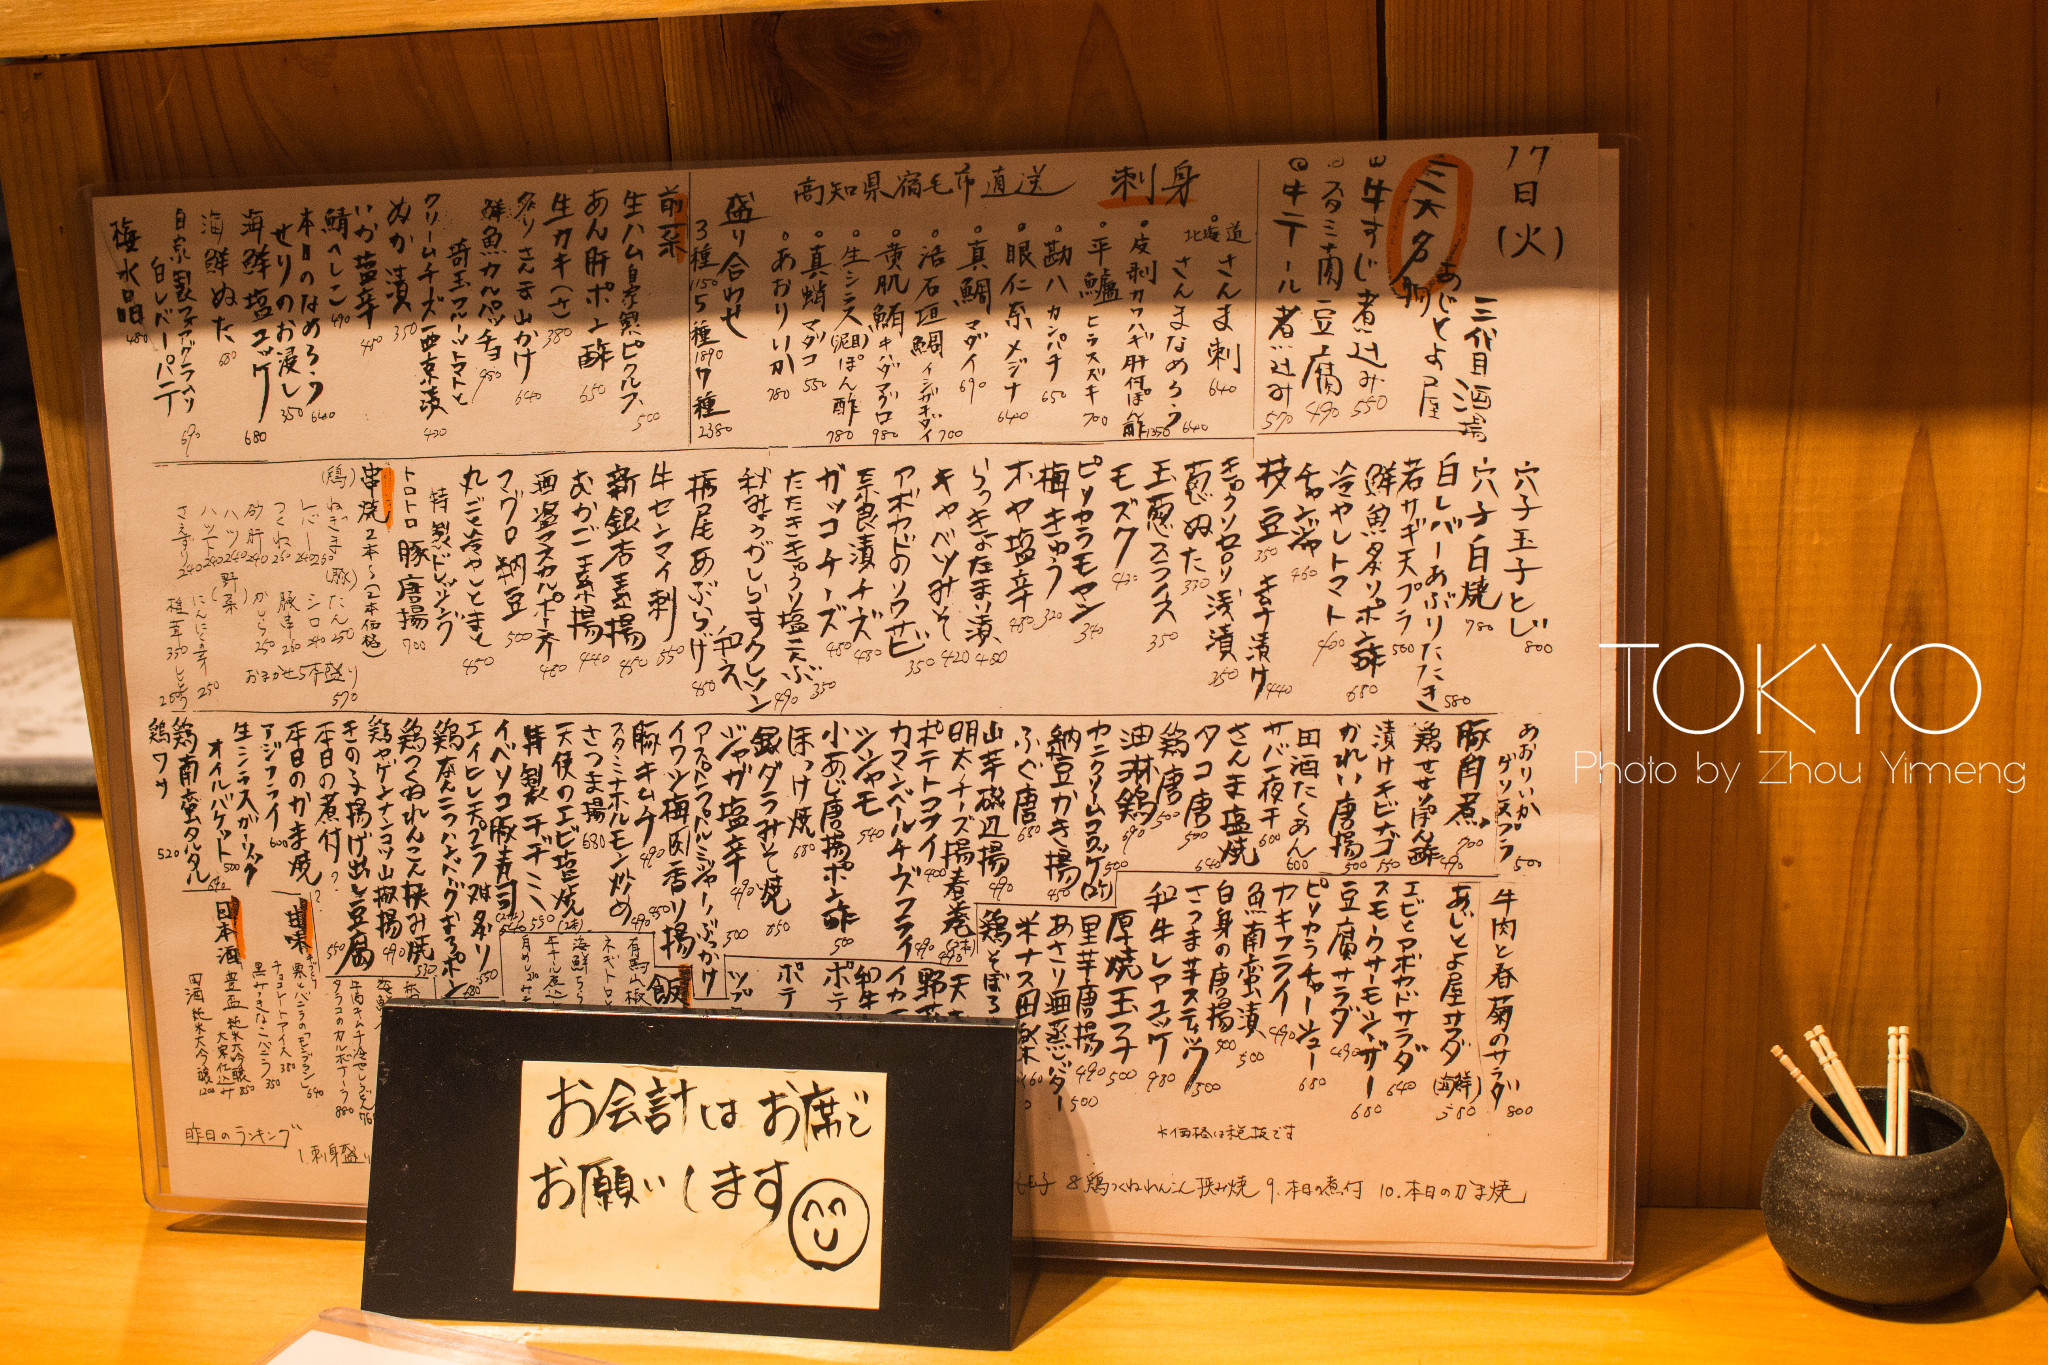 17日(火)
三代目酒場
あじとよ屋
三大名物
牛すじ煮込み 550
スタミナ肉豆腐 490
牛テール煮込み 570
刺身
高知県宿毛市直送
北海道
さんま刺 640
さんまなめろう 640
皮剥 カワハギ 肝付ぽん酢 1350
平鱸 ヒラスズキ 700
勘八 カンパチ 650
眼仁系 メジナ 640
真鯛 マダイ 690
活石垣鯛 イシガキダイ 700
黄肌鮪 キハダマグロ 980
生シラス ぽん酢 780
真蛸 マダコ 550
あおりいか 780
盛り合わせ
3種 1150 5種 1890 7種 2380
前菜
生ハム自家製ピクルス 500
あん肝ポン酢 650
生カキ(2ヶ) 380
炙りさんま山かけ 640
鮮魚カルパッチョ 950
埼玉フルーツトマトと
クリームチーズ西京漬 420
ぬか漬 350
いか塩辛 450
鯖へしこ 490
本日のなめろう 640
せりのお浸し 350
海鮮塩ユッケ 680
海鮮ぬた
自家製フォアグラ入り
白レバーパテ 690
梅水晶 480
穴子玉子とじ 800
穴子白焼 780
白レバーあぶりたたき 580
若サギ天プラ 500
鮮魚炙りポン酢 680
冷やしトマト 400
チャンジャ 460
枝豆 350
キムチ漬け 440
浅漬 350
葱ぬた 330
玉葱スライス 350
モズク 420
ピリカラモヤシ 340
梅きゅう 320
ホヤ塩辛 480
らっきょたまり漬 450
キャベツみそ 420
アボカドのソワサビ 350
奈良漬チーズ 480
ガッコチーズ 480
たたききゅうり塩こんぶ 350
秋みょうがしらすクレソン和え 490
栃尾あぶらげ 450
牛センマイ刺 550
新銀杏素揚 450
むかご素揚 440
酒盗マスカルポーネ 480
マグロ納豆 500
丸ごと冷やしとまと 450
特製ドレッシング
トロトロ豚唐揚 700
串焼 2本〜(2本価格)
(鶏)
ねぎま 260
レバー 240
つくね 260
砂肝 240
ハツ 240
さえずり 240
(豚)
たん 250
シロ 240
豚串 260
かしら 250
おまかせ5本盛り 570
(野菜)
にんにく芽 250
椎茸 350
ししとう 260
あおりいか
ゲソ天プラ 500
豚角煮 700
鶏せせりぽん酢 490
漬けキビナゴ 550
かれい唐揚 500
田酒たくあん 600
サバ一夜干 600
さんま塩焼 640
タコ唐 500
鶏唐 500
油淋鶏 690
カニクリームコロッケ 500
納豆かき揚 450
ふぐ唐 680
山芋磯辺揚 490
明太チーズ揚春巻 490
ポテトフライ 400
カマンベールチーズフライ 490
シシャモ 540
小あじ唐揚ポン酢 500
ほっけ焼 680
銀ダラみそ焼 850
ジャガ塩辛 490
アスパラベーコン 500
イワシ梅肉香り揚 450
豚キムチ 490
スタミナホルモン炒め 490
さつま揚 680
天使のエビ塩焼
特製チヂミ 550
イベリコ豚寿司
エイヒレ天プラ 550
鶏なんこつハンバーグおろしポン 480
鶏つくねれんこん挟み焼 530
鶏ヤゲンナンコツ山椒揚 490
きのこ揚げ出し豆腐 550
本日の煮付 ?
本日のかま焼 ?
アジフライ 600
生シラスガーリック
オイルバケット 500
鶏南蛮タルタル 640
鶏ワサ 520
牛肉と春菊のサラダ 800
あじとよ屋サラダ(海鮮) 580
エビとアボカドサラダ 640
スモークサーモンシーザー 680
豆腐サラダ 490
ピリカラチャーシュー 680
カキフライ 490
魚南蛮漬 500
白身の唐揚 500
さつま芋スティック 500
和牛レアユッケ 980
厚焼玉子 500
里芋唐揚 490
あさり酒蒸しバター 500
米ナス田楽
鶏そぼろ
飯
甘味
チョコレートアイス 380
黒みつきなこバニラ 350
日本酒
豊盃 純米大吟醸 850
田酒 純米大吟醸 1200
昨日のランキング
1 刺身盛り
8 鶏つくねれんこん挟み焼 9. 本日の煮付 10. 本日のかま焼
*価格は税抜です
お会計は お席で
お願いします
TOKYO
Photo by Zhou Yimeng